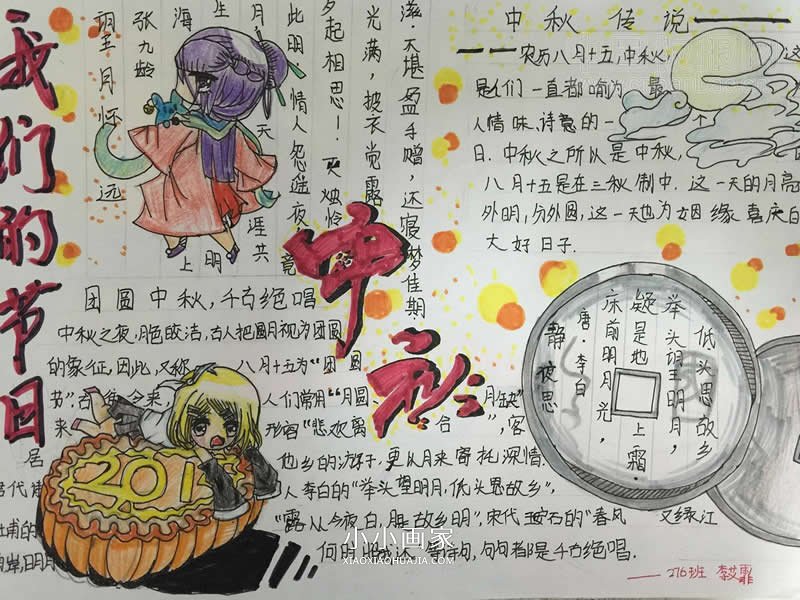 我们的节日
中秋
张九龄
望月怀远
海
生
月
天
涯共
此
明
情人怨遥夜
竟
夕起相思
灭烛怜
光满,披衣觉露
滋。不堪盈手赠,还寝梦佳期
中秋传说
农历八月十五,中秋,
这
是人们一直都喻为
最
人情味、诗意的一
日。中秋之所以是中秋,
八月十五是在三秋制中。这一天的月亮
外明,分外圆,这一天也为姻缘喜庆的
大好日子.
团圆中秋,千古绝唱
中秋之夜,月色皎洁,古人把圆月视为团圆
的象征,因此,又称
八月十五为“团圆
节”古
今来,
人们常用“月圆、
月缺”
来
形容“悲欢离
合
”,客
居
他乡的游子,更以月来寄托深情.
人李白的“举头望明月,低头思故乡”,
杜甫的
“露从今夜白,月是故乡明”,宋代王安石的“春风
又绿江
何时
等诗句,句句都是千古绝唱.
静夜思
唐·李白
床前明月光,
疑是地上霜.
举头望明月,
低头思故乡
201
小小画家
XIAOXIAOHUAJIA.COM
216班